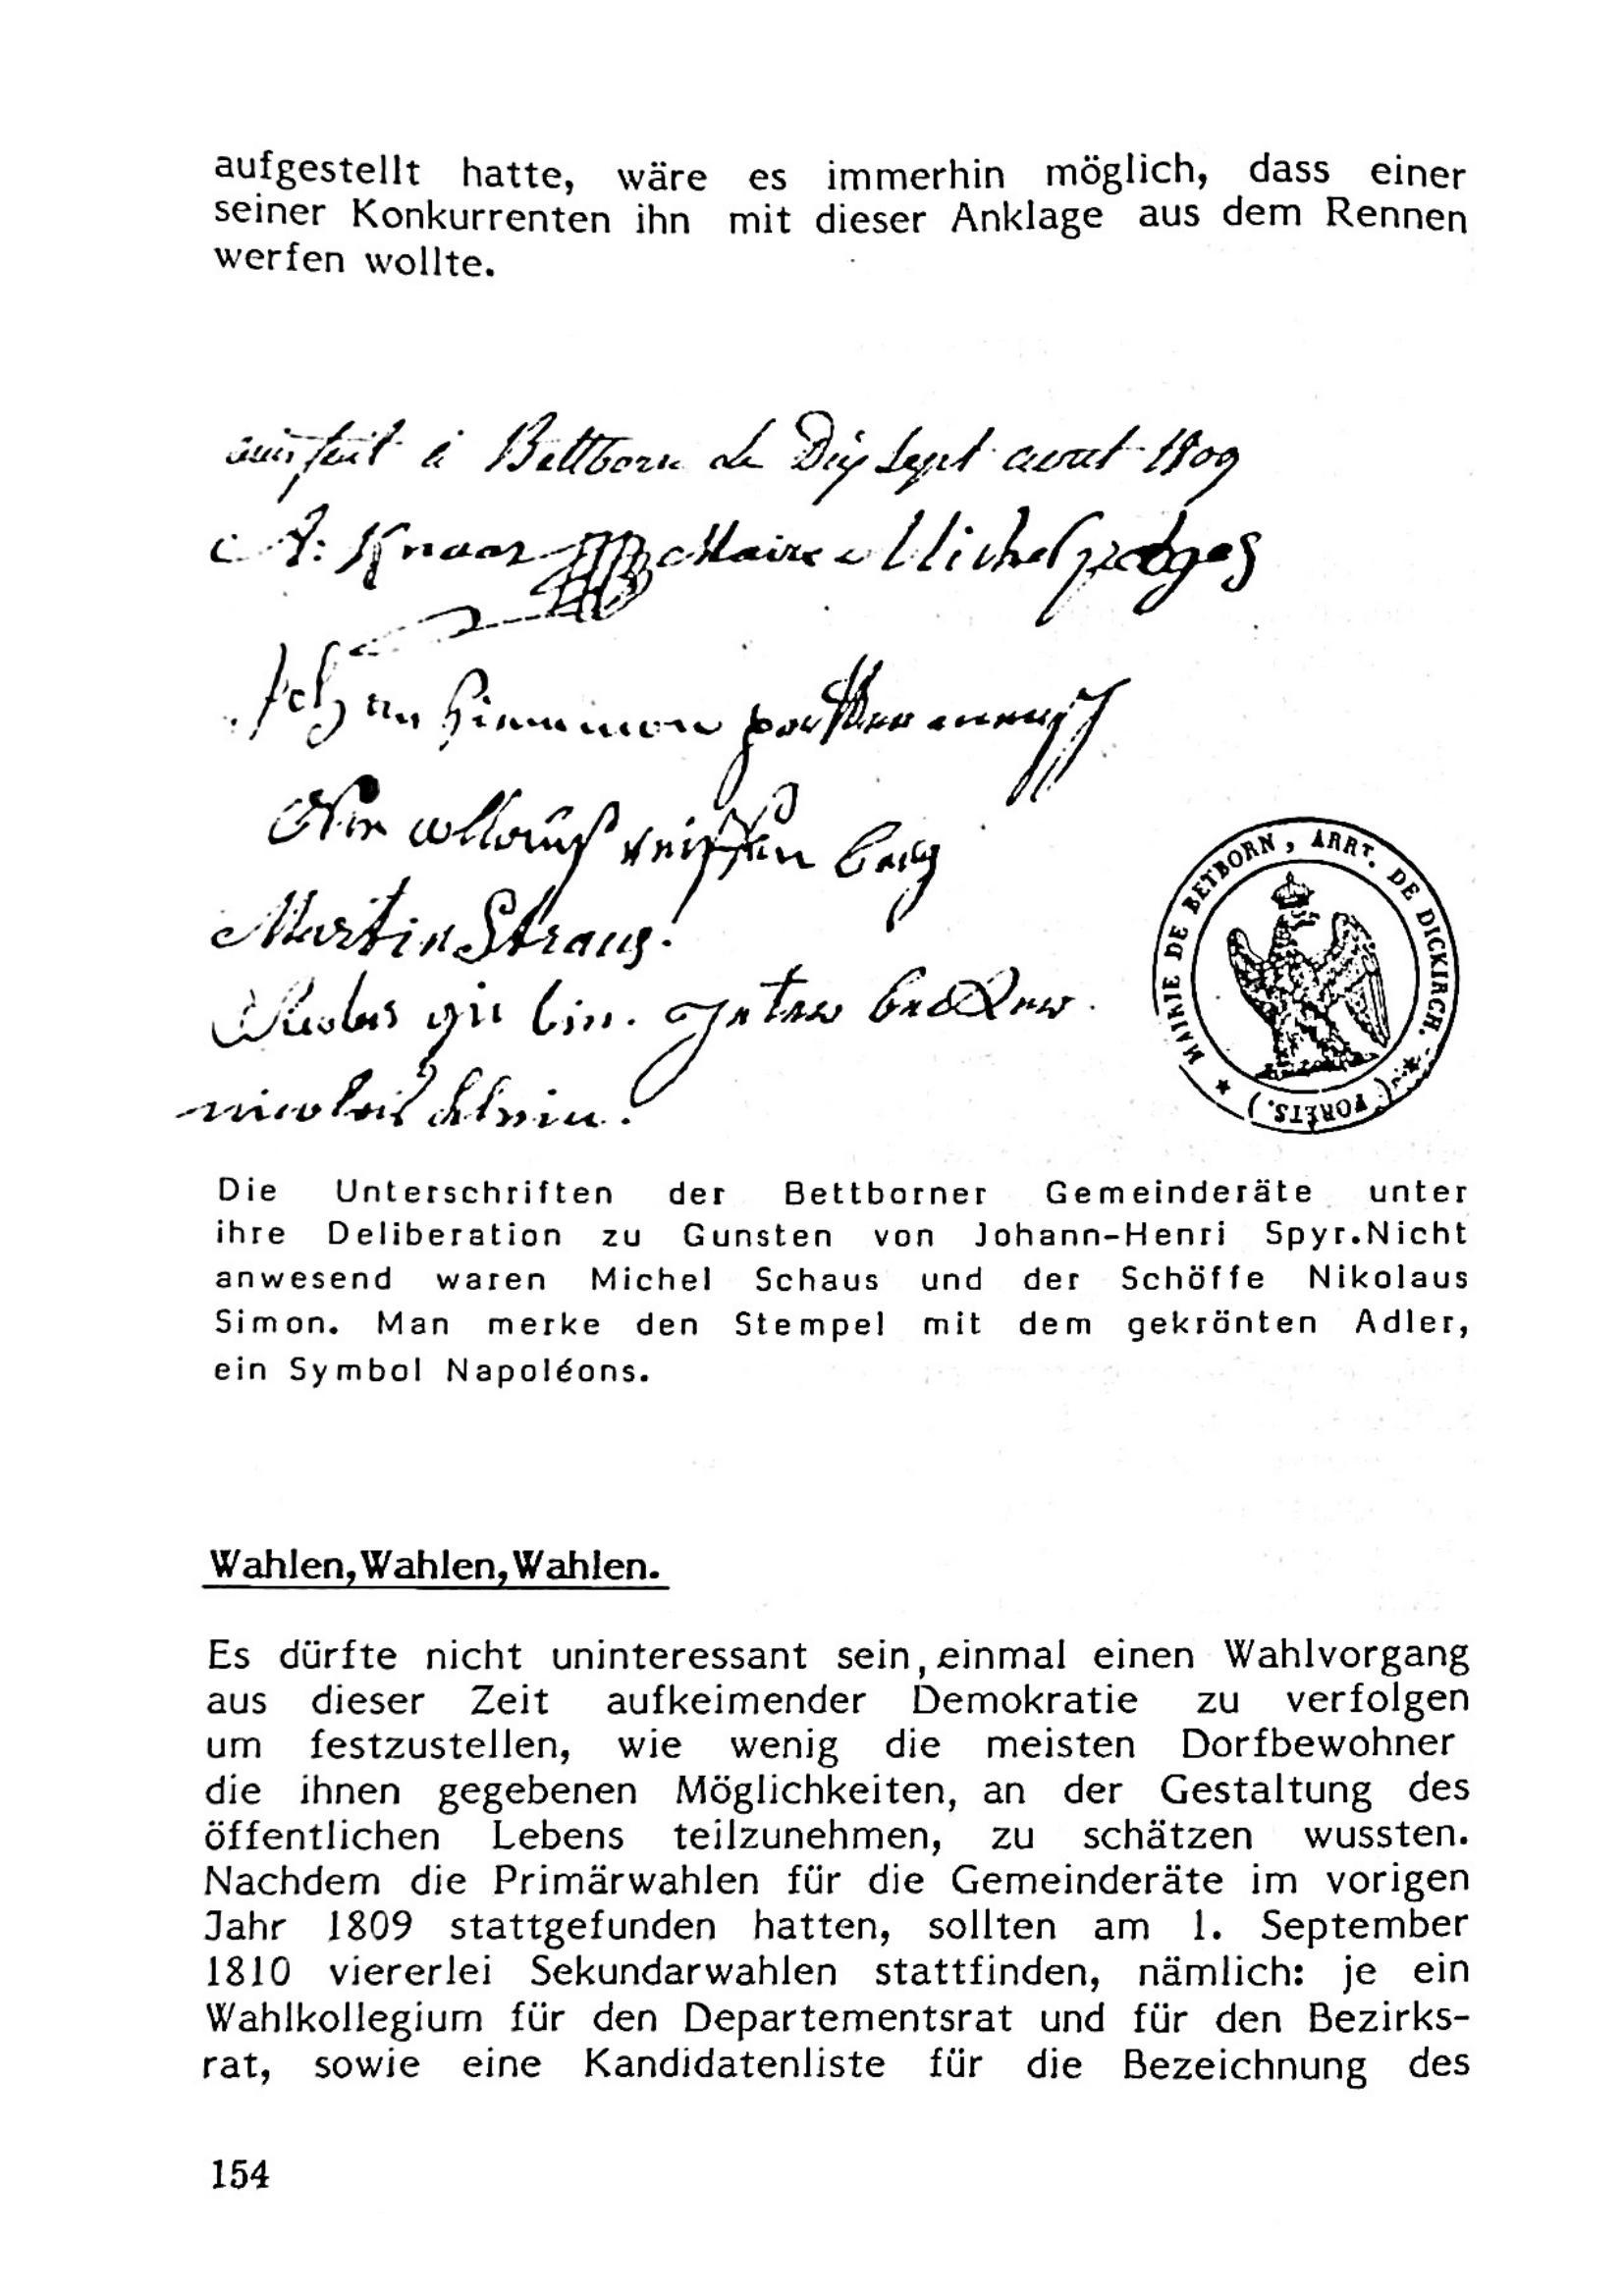 aufgestellt hatte, wäre es immerhin möglich, dass einer
seiner Konkurrenten ihn mit dieser Anklage aus dem Rennen
werfen wollte.
fait à Bettborn le Dix Sept aout 1809
A: Knaar Maire Michel
Martin Straus.
nicolas klein.
MAIRIE DE BETBORN, ARRT. DE DICKIRCH.
(FORÊTS.)
Die Unterschriften der Bettborner Gemeinderäte unter
ihre Deliberation zu Gunsten von Johann-Henri Spyr.Nicht
anwesend waren Michel Schaus und der Schöffe Nikolaus
Simon. Man merke den Stempel mit dem gekrönten Adler,
ein Symbol Napoléons.
Wahlen,Wahlen,Wahlen.
Es dürfte nicht uninteressant sein,einmal einen Wahlvorgang
aus dieser Zeit aufkeimender Demokratie zu verfolgen
um festzustellen, wie wenig die meisten Dorfbewohner
die ihnen gegebenen Möglichkeiten, an der Gestaltung des
öffentlichen Lebens teilzunehmen, zu schätzen wussten.
Nachdem die Primärwahlen für die Gemeinderäte im vorigen
Jahr 1809 stattgefunden hatten, sollten am 1. September
1810 viererlei Sekundarwahlen stattfinden, nämlich: je ein
Wahlkollegium für den Departementsrat und für den Bezirks-
rat, sowie eine Kandidatenliste für die Bezeichnung des
154